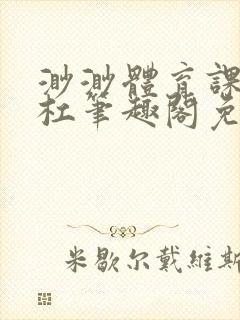 渺渺體育課
杜筆趣閣免
米歇尔戴維斯